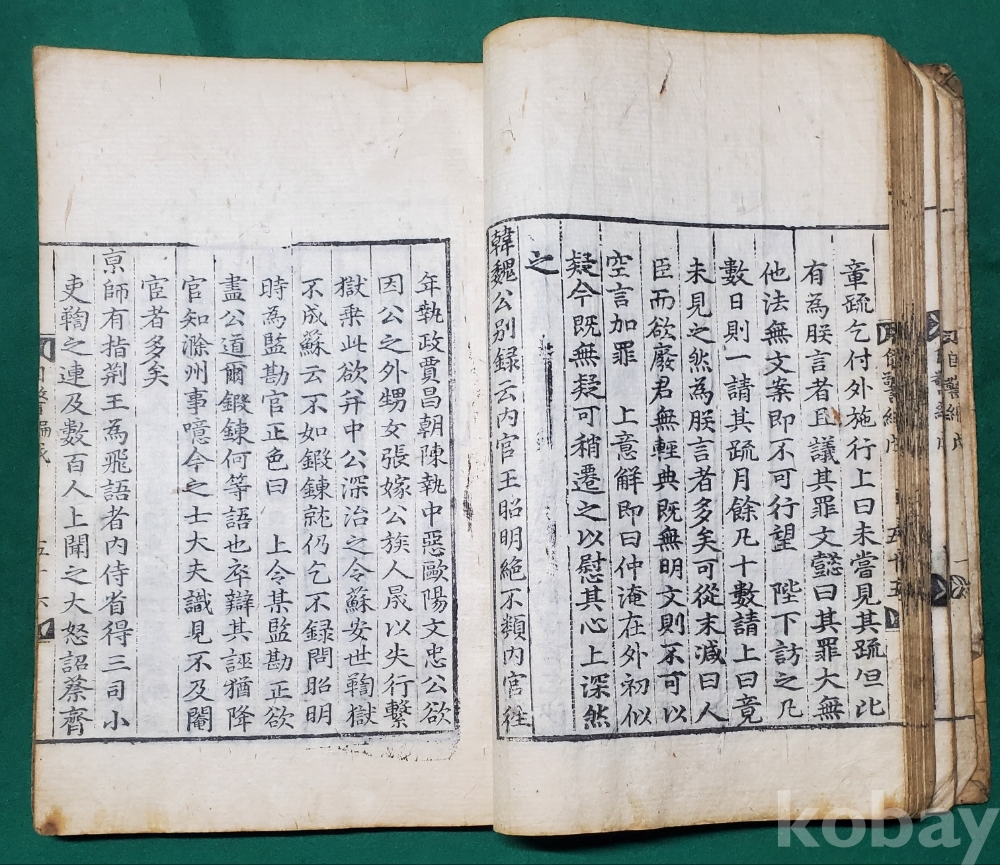 章疏乞付外施行上曰未嘗見其疏但比
有為朕言者且議其罪文懿曰其罪大無
他法無文案即不可行望 陛下訪之凡
數日則一請其疏月餘凡十數請上曰竟
未見之然為朕言者多矣可從末減曰人
臣而欲廢君無輕典既無明文則不可以
空言加罪 上意解即曰仲淹在外初似
疑今既無疑可稍遷之以慰其心上深然
之
韓魏公別録云內官王昭明絶不類內官往
年執政賈昌朝陳執中惡歐陽文忠公欲
因公之外甥女張嫁公族人晟以失行繫
獄乗此欲并中公深治之令蘇安世鞫獄
不成蘇云不如鍛鍊就仍乞不録問昭明
時為監勘官正色曰 上令某監勘正欲
盡公道爾鍛鍊何等語也卒辯其誣猶降
官知滁州事噫今之士大夫識見不及閹
宦者多矣
京師有指荆王為飛語者內侍省得三司小
吏鞫之連及數百人上聞之大怒詔蔡齊
五十五
自警編
五十六
kobay